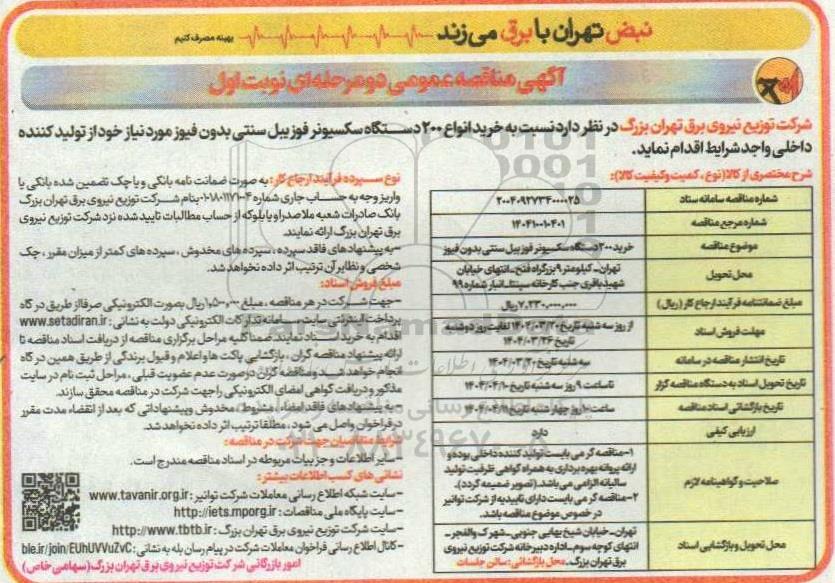 نبض تهران با برق می‌زند
بهینه مصرف کنیم
آگهی مناقصه عمومی دو مرحله‌ای نوبت اول
شرکت توزیع نیروی برق تهران بزرگ در نظر دارد نسبت به خرید انواع ۲۰۰ دستگاه سکسیونر فوزیبل سنتی بدون فیوز مورد نیاز خود از تولید کننده
داخلی واجد شرایط اقدام نماید.
شرح مختصری از کالا (نوع، کمیت و کیفیت کالا):
شماره مناقصه سامانه ستاد ۲۰۰۴۰۹۲۷۳۴۰۰۰۰۲۵
شماره مرجع مناقصه ۱۴۰۴۱۰۰۱۰۴۰۱
موضوع مناقصه خرید ۲۰۰ دستگاه سکسیونر فوزیبل سنتی بدون فیوز
محل تحویل تهران- کیلومتر ۹ بزرگراه فتح- انتهای خیابان
شهید باقری جنب کارخانه سپنتا- انبار شماره ۹۹
مبلغ ضمانتنامه فرآیند ارجاع کار (ریال) ۷,۲۳۰,۰۰۰,۰۰۰ ریال
مهلت فروش اسناد از روز سه شنبه تاریخ ۱۴۰۴/۰۳/۲۰ لغایت روز دوشنبه
تاریخ ۱۴۰۴/۰۳/۲۶
تاریخ انتشار مناقصه در سامانه سه شنبه تاریخ ۱۴۰۴/۰۳/۲۰
تاریخ تحویل اسناد به دستگاه مناقصه گزار تا ساعت ۹ روز سه شنبه تاریخ ۱۴۰۴/۰۴/۱۰
تاریخ بازگشائی اسناد مناقصه ساعت ۱۰ روز چهار شنبه تاریخ ۱۴۰۴/۰۴/۱۱
ارزیابی کیفی دارد
صلاحیت و گواهینامه لازم ۱- مناقصه گر می بایست تولید کننده داخلی بوده و
ارائه پروانه بهره برداری به همراه گواهی ظرفیت تولید
سالیانه الزامی می باشد. (تصویر ضمیمه گردد).
۲- مناقصه گر می بایست دارای تاییدیه از شرکت توانیر
در خصوص موضوع مناقصه باشد.
محل تحویل و بازگشایی اسناد تهران- خیابان شیخ بهایی جنوبی- شهرک والفجر-
انتهای کوچه سوم- اداره دبیرخانه شرکت توزیع نیروی
برق تهران بزرگ. محل بازگشائی: سالن جلسات
نوع سپرده فرآیند ارجاع کار: به صورت ضمانت نامه بانکی و یا چک تضمین شده بانکی یا
واریز وجه به حساب جاری شماره بنام شرکت توزیع نیروی برق تهران بزرگ
بانک صادرات شعبه ملاصدرا و یا بلوکه از حساب مطالبات تایید شده نزد شرکت توزیع نیروی
برق تهران بزرگ ارائه نمایند.
- به پیشنهادهای فاقد سپرده، سپرده های مخدوش، سپرده های کمتر از میزان مقرر، چک
شخصی و نظایر آن ترتیب اثر داده نخواهد شد.
مبلغ فروش اسناد:
- جهت شرکت در هر مناقصه، مبلغ ۱,۵۰۰,۰۰۰ ریال بصورت الکترونیکی صرفا از طریق درگاه
پرداخت اینترنتی سایت، سامانه تدارکات الکترونیکی دولت به نشانی: www.setadiran.ir
اقدام به خرید اسناد نمایند. ضمنا کلیه مراحل برگزاری مناقصه از دریافت اسناد مناقصه تا
ارائه پیشنهاد مناقصه گران، بازگشایی پاکت ها و اعلام و قبول برندگی از طریق همین درگاه
انجام خواهد شد و مناقصه گران در صورت عدم عضویت قبلی، مراحل ثبت نام در سایت
مذکور و دریافت گواهی امضای الکترونیکی را جهت شرکت در مناقصه محقق سازند.
- به پیشنهادهای فاقد امضاء، مشروط، مخدوش و پیشنهاداتی که بعد از انقضاء مدت مقرر
در فراخوان واصل می شود، مطلقا ترتیب اثر داده نخواهد شد.
شرایط متقاضیان جهت شرکت در مناقصه:
- سایر اطلاعات و جزییات مربوطه در اسناد مناقصه مندرج است.
نشانی های کسب اطلاعات بیشتر:
- سایت شبکه اطلاع رسانی معاملات شرکت توانیر: www.tavanir.org.ir
- سایت پایگاه ملی مناقصات: http://iets.mporg.ir
- سایت شرکت توزیع نیروی برق تهران بزرگ: http://www.tbtb.ir
- کانال اطلاع رسانی فراخوان معاملات شرکت در پیام رسان بله به نشانی: ble.ir/join/EUhUVVuZvC
امور بازرگانی شرکت توزیع نیروی برق تهران بزرگ (سهامی خاص)